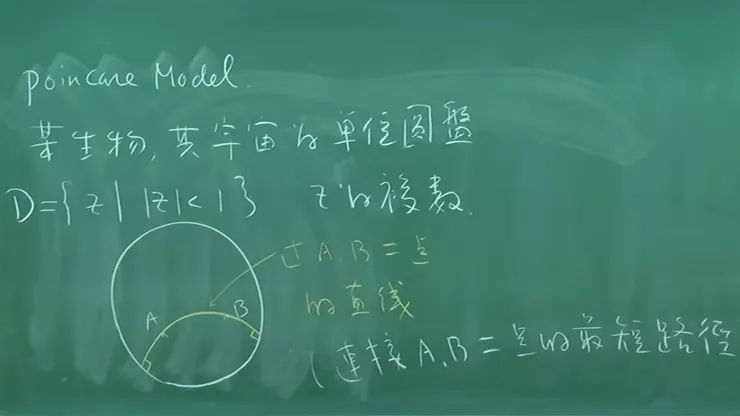 poincare Model.
某生物,其宇宙为單位圓盤
D={z| |z|<1} z为複数.
过A,B二点
的直线
(連接A,B二点的最短路径
A
B